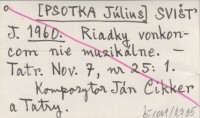 [PSOTKA Július] SVIŠŤ
J. 1960. Riadky vonkon-
com nie muzikálne. —
Tatr. Nov. 7, nr 25: 1.
Kompozytor Ján Cikker
a Tatry.